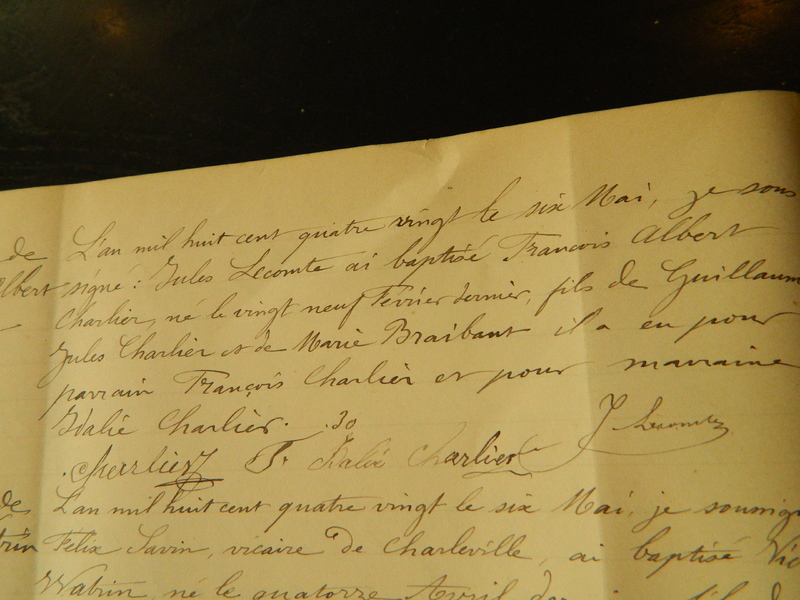 de L'an mil huit cent quatre vingt le six Mai, je sous
Albert signé : Jules Lecomte ai baptisé François Albert
Charlier, né le vingt neuf Février dernier, fils de Guillaum
Jules Charlier et de Marie Braibant il a eu pour
parrain François Charlier et pour marraine
Idalie Charlier. .30
J Lecomte
Charlier F. Idalie Charlier
de L'an mil huit cent quatre vingt le six Mai, je soussign
trin Félix Savin, vicaire de Charleville, ai baptisé Vic
Watrin, né le quatorze Avril